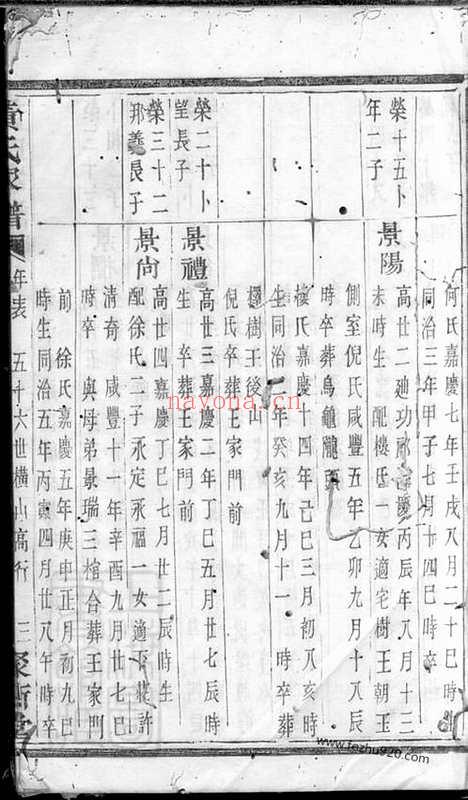 何氏嘉慶七年壬戌八月二十巳時
同治三年甲子七月廿四巳時卒
榮十五卜
年二子
景陽
高廿二廸功郎嘉慶丙辰年八月十三
未時生 配樓氏一女適宅樹王朝玉
側室倪氏咸豐五年乙卯九月十八辰
時卒葬烏龜隴
樓氏嘉慶十四年己巳三月初八亥時
生同治 年癸亥九月十一 時卒葬
樹王後山
倪氏卒葬王家門前
榮二十卜
呈長子
景禮
高廿三嘉慶二年丁巳五月廿七辰時
生 卒葬王家門前
榮三十二
邢善長子
景尚
高廿四嘉慶丁巳七月廿二辰時生
配徐氏二子永定永福一女適下 許
清奇 咸豐十一年辛酉九月廿七
時卒 與母弟景瑞三棺合葬王家門
前 徐氏嘉慶五年庚申正月初九巳
時生同治五年丙寅四月廿八午時卒
黃氏家譜 年表 五十六世橫山高行 三
nayona.cn
www.fezhu920.com